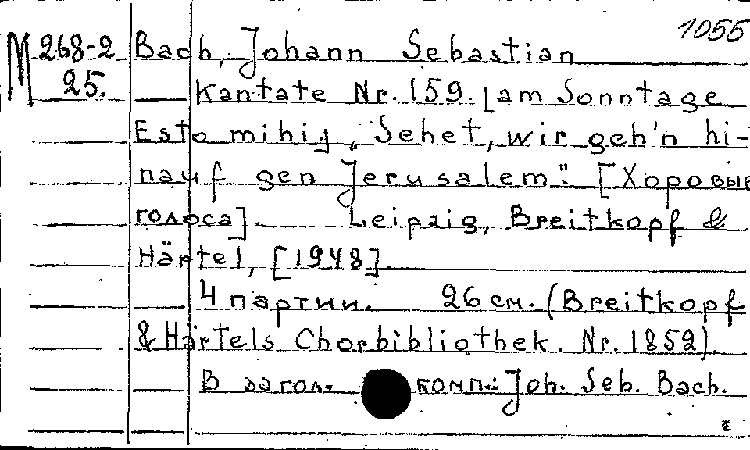 1055
М 268-2 Bach, Johann Sebastian
25. Kantate Nr. 159. [am Sonntage
Esto mihi] „Sehet, wir geh'n hi-
nauf gen Jerusalem." [Хоровые
голоса]. Leipzig, Breitkopf &
Härtel, [1948]
4 партии. 26 см. (Breitkopf
& Härtels Chorbibliothek. Nr. 1852)
В загол. комп.: Joh. Seb. Bach.